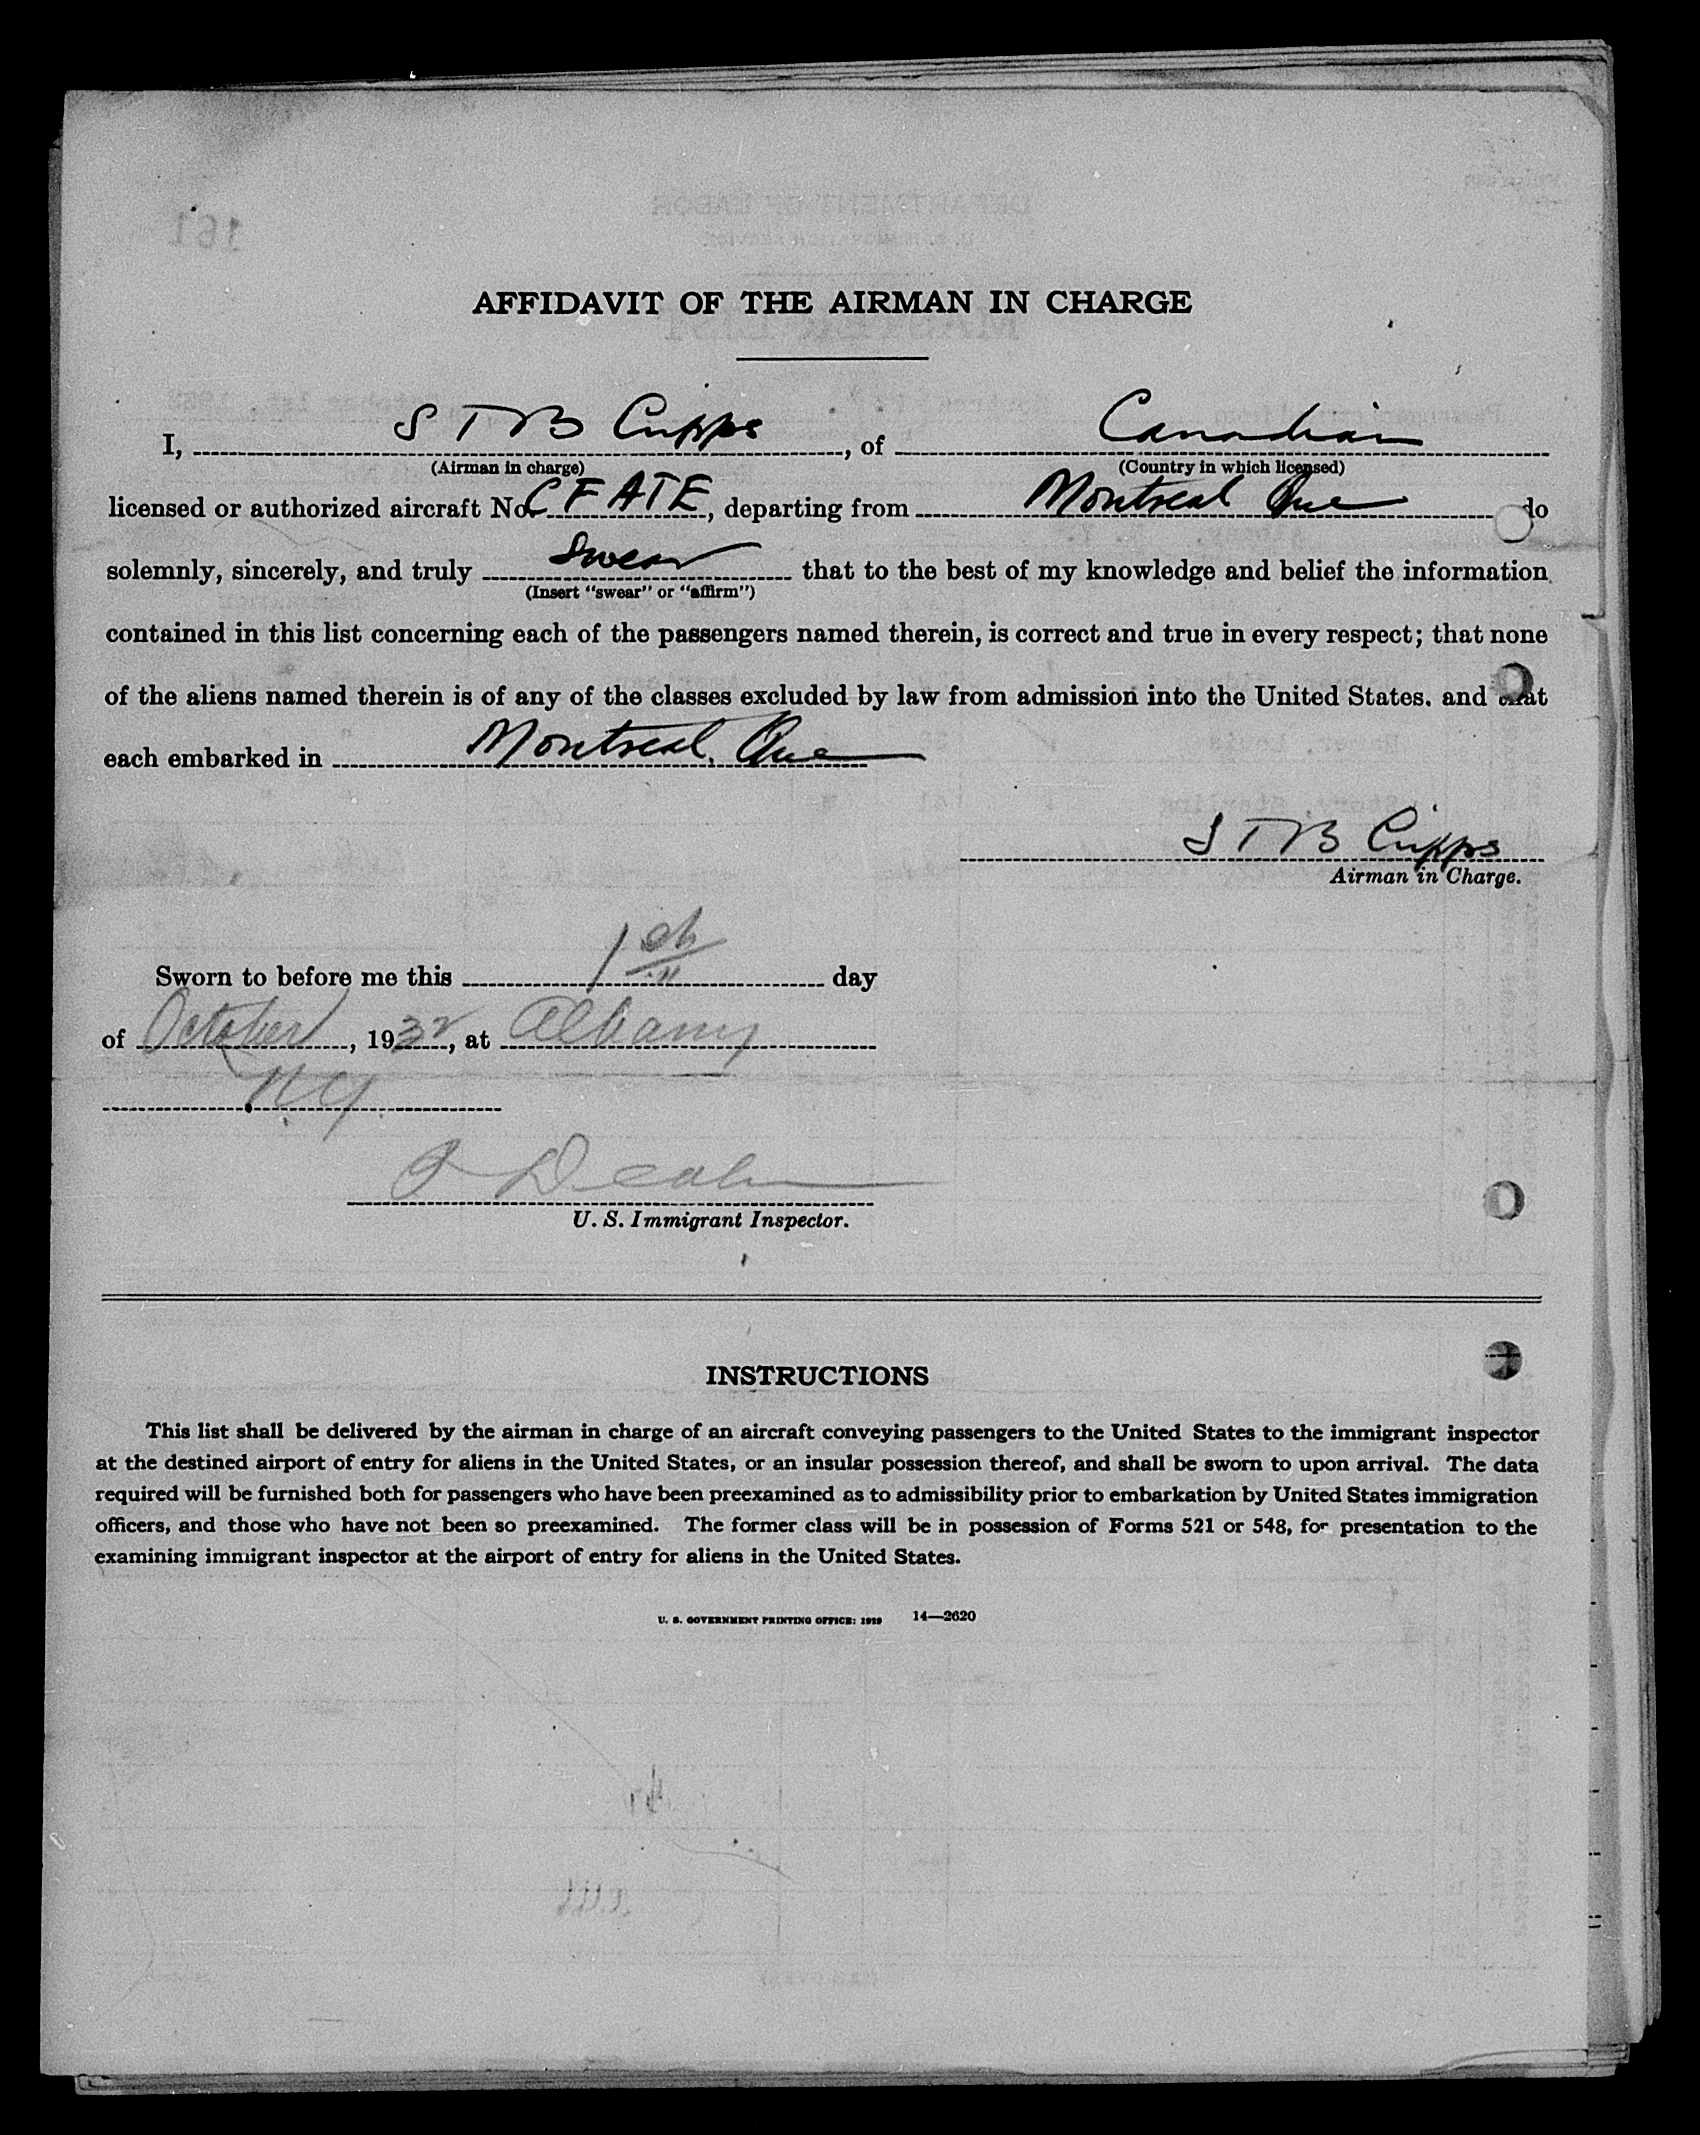 AFFIDAVIT OF THE AIRMAN IN CHARGE
I, S T B Cripps, of Canadian
(Airman in charge) (Country in which licensed)
licensed or authorized aircraft No. CFATE, departing from Montreal Que do
solemnly, sincerely, and truly swear that to the best of my knowledge and belief the information
(Insert "swear" or "affirm")
contained in this list concerning each of the passengers named therein, is correct and true in every respect; that none
of the aliens named therein is of any of the classes excluded by law from admission into the United States, and that
each embarked in Montreal, Que
S T B Cripps
Airman in Charge.
Sworn to before me this 1st day
of October, 1932, at Albany
N.Y.
U. S. Immigrant Inspector.
INSTRUCTIONS
This list shall be delivered by the airman in charge of an aircraft conveying passengers to the United States to the immigrant inspector
at the destined airport of entry for aliens in the United States, or an insular possession thereof, and shall be sworn to upon arrival. The data
required will be furnished both for passengers who have been preexamined as to admissibility prior to embarkation by United States immigration
officers, and those who have not been so preexamined. The former class will be in possession of Forms 521 or 548, for presentation to the
examining immigrant inspector at the airport of entry for aliens in the United States.
U. S. GOVERNMENT PRINTING OFFICE: 1929 14—2620